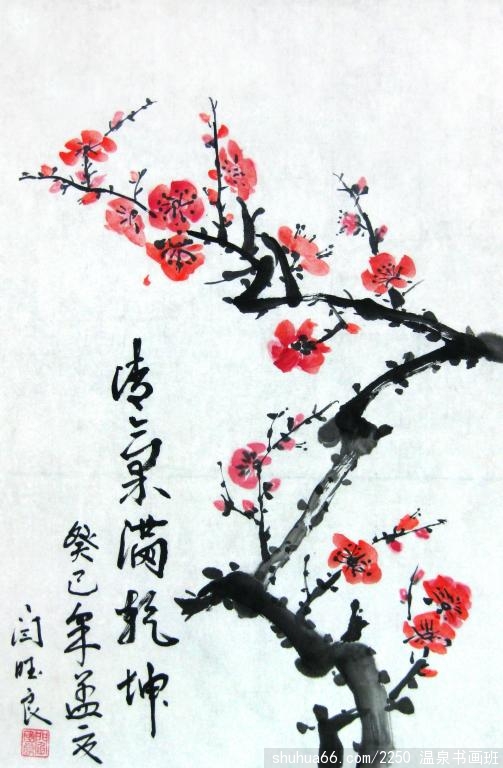 清气满乾坤
癸巳年孟夏
闫旺良
shuhua66.com/2250 温泉书画班